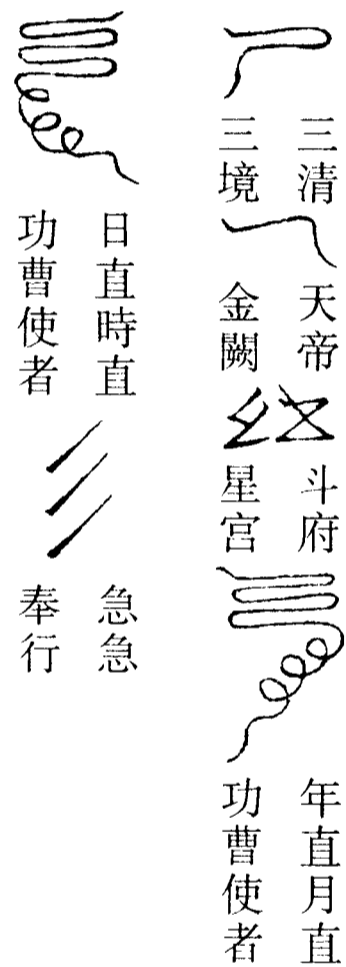 三清
三境
天帝
金闕
斗府
星宮
年直月直
功曹使者
日直時直
功曹使者
急急
奉行